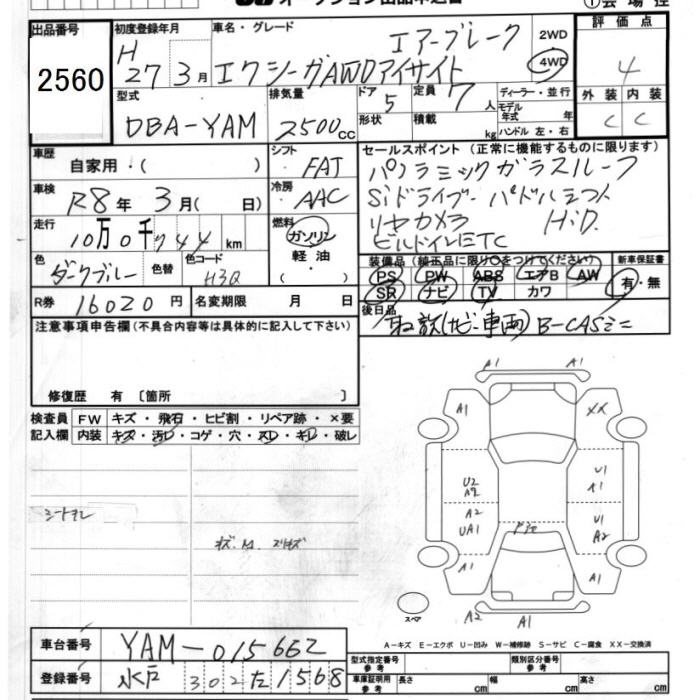 ①会場控
出品番号 2560
初度登録年月 H 27 3月
車名・グレード エアーブレーク
エクシーガAWDアイサイト
2WD
4WD
評価点 4
外装 内装
C C
型式 DBA-YAM
排気量 2500cc
ドア 5
形状
定員 7人
積載 kg
ディーラー・並行
モデル年式 年
ハンドル 左・右
車歴 自家用・( )
シフト FAT
車検 R8年 3月( 日)
冷房 AAC
走行 10万0千744 km
燃料 ガソリン
軽油
・( )
色 ダークブルー
色替
色コード H3Q
R券 16020円
名変期限 月 日
セールスポイント(正常に機能するものに限ります)
パノラミックガラスルーフ
Siドライブ・パドルシフト
リヤカメラ H.D.
ビルトインETC
装備品(純正品に限り○をつけてください)
PS PW ABS エアB AW
SR ナビ TV カワ
新車保証書
有・無
後日品
取説(ナビ・車両) B-CASミニ
注意事項申告欄(不具合内容等は具体的に記入して下さい)
修復歴 有 〔箇所 〕
検査員 FW キズ・飛石・ヒビ割・リペア跡・×要
記入欄 内装 キズ・汚レ・コゲ・穴・スレ・キレ・破レ
A1 A1
A1 XX
U2 A2
U1 A1
A2 UA1
U1 A2
A1 A1
スペア
A2 A1
A-キズ E-エクボ U-凹み W-補修跡 S-サビ C-腐食 XX-交換済
車台番号 YAM-015662
登録番号 水戸 302 た 1568
型式指定番号 参考
類別区分番号 参考
車庫証明用 参考
長さ cm
幅 cm
高さ cm